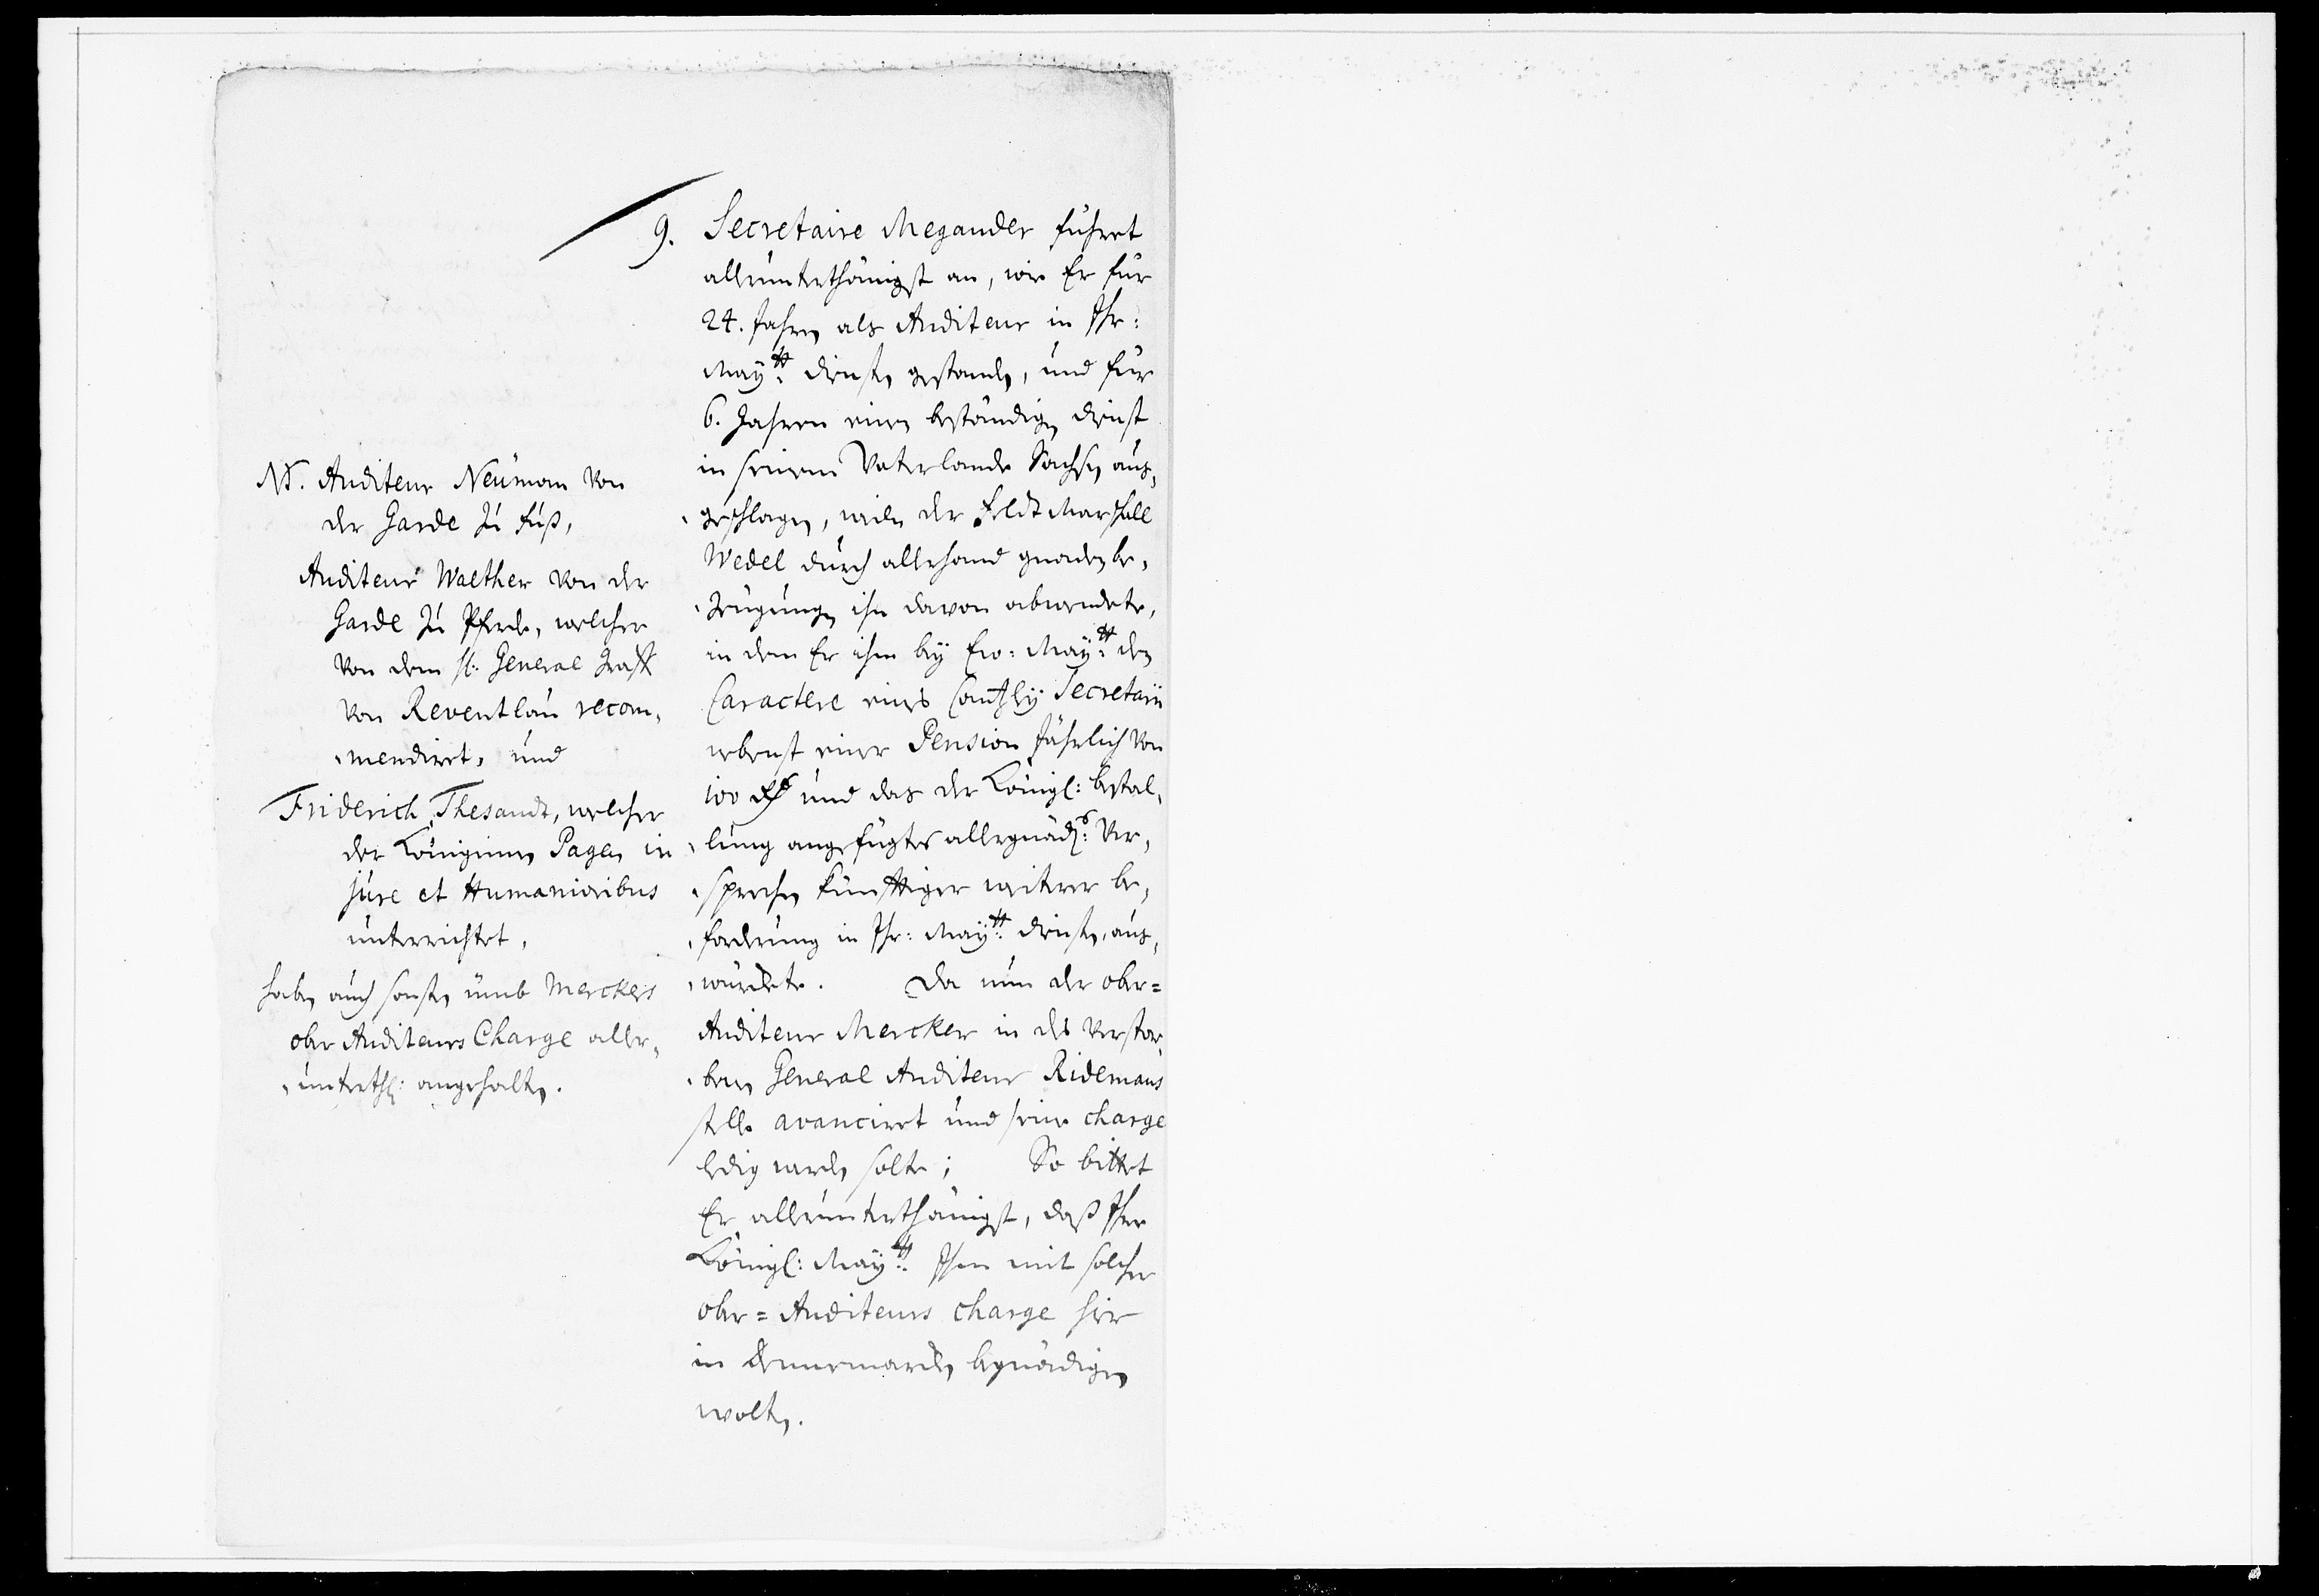 9. Secretaire Megander führet
allerunterthänigst an, wie Er für
24. Jahren als Auditeur in Ihr:
Maytt: diensten gestanden, und für
6. Jahren einen beständigen dienst
in seinem Vaterlande Sachsen aus,
geschlagen, weilen der FeldtMarshall
Wedel durch allerhand gnaden be,
zeugungen ihn davon abwendete,
in dem Er ihm bey Ew: Maytt: den
Caractere eines Cantzley Secretarii
nebenst einer Pension jährlich von
100 und das der Königl: bestal,
lung angefügtes allergnäd: Ver,
sprechen künfftiger weiterer be,
forderung in Ihr: Maytt: diensten, aus,
würckete. Da nun der ober=
Auditeur Mercker in des verstor,
benen General Auditeur Ridemans
stelle avanciret und seine charge
ledig werden solte; So bittet
Er allerunterthänigst, daß Ihre
Königl: Maytt: Ihm mit solcher
ober=Auditeurs charge hier
in Dennemarck begnädigen
wolten.
NB. Auditeur Neüman von
der Garde zu fuß,
Auditeur Walther von der
Garde zu Pferde, welcher
von dem H: General Graff
von Reventlau recom,
mendiret, und
Friderich Thesandt, welcher
der Königinnen Pagen in
jure et Humanioribus
unterrichtet,
haben auch sonsten umb Merckers
ober Auditeurs Charge aller,
unterth: angehalten.